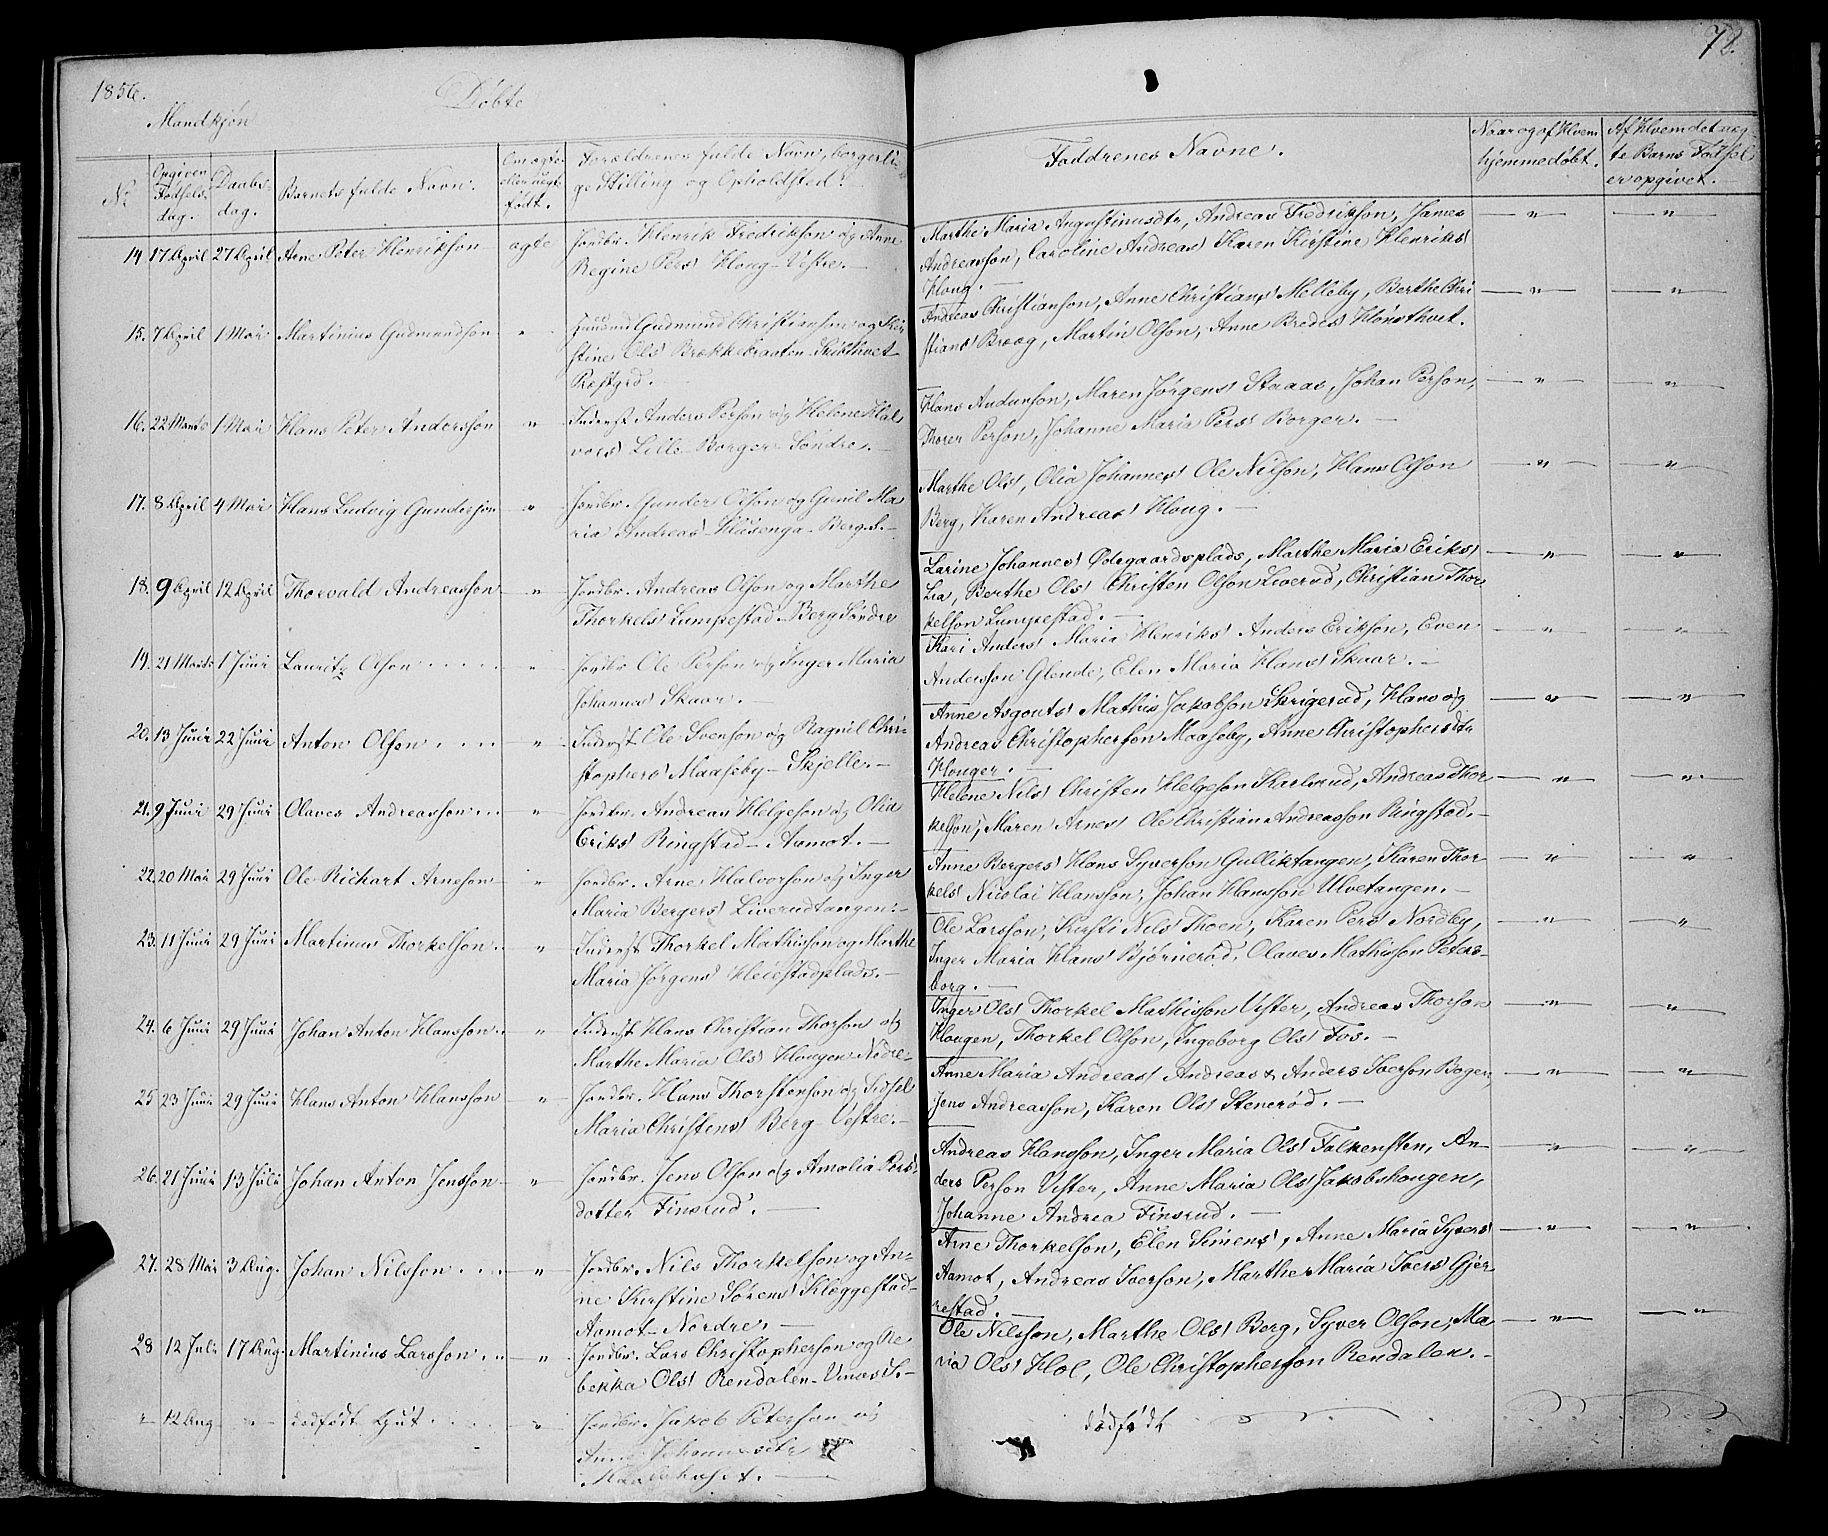 1856.
Døbte
78.
Mandkjøn
No
Opgiven Fødselsdag.
Daabsdag.
Barnets fulde Navn.
Om ægte eller uægte født.
Forældrenes fulde Navn, borgerlige Stilling og Opholdsted.
Faddrenes Navne.
Naar og af Hvem hjemmedøbt.
Af Hvem det uægte Barns Fødsel er opgivet.
14 17 April 27 April Arne Peter Henrikson ægte Jordbr. Henrik Fredrikson og Anne
Regine Pers Houg Vestre.
Marthe Maria Augustinusdtr, Andreas Fredrikson, James
Andreasson, Caroline Andreas Karen Kirstine Henriks
Houg.
15. 7 April 1 Mai Martinius Gudmundson " Gudmund Christianson og Kir
stine Ols Brækkebraaten
Andreas Christianson, Anne Christians Melleby, Berthe Chri
stians Braag, Martin Olson, Anne Bredes
16. 22 Marts 1 Mai Hans Peter Andersson " Inderst Anders Person og Helene Hal
vors Lille Borger Søndre.
Hans Audunson, Maren Jørgens Staaas, Johan Person,
Thorer Person, Johanne Maria Pers Borger.
17. 8 April 4 Mai Hans Ludvig Gunderson " Jordbr. Gunder Olson og Gunil Ma
ria Andreas Husenga Berg S.
Marthe Ols, Olia Johannes Ole Nilson, Hans Olson
Berg, Karen Andreas Houg.
18. 9 April 12 April Thorvald Andreasson " Jordbr. Andreas Olson og Marthe
Thorkels Lumpestad Berg Søndre
Larine Johannes Ødegaardsplads, Marthe Maria Eriks
Lia, Berthe Ols Christen Olson Liverud, Christian Thor
kelson Lumpestad.
19. 21 Marts 1 Juni Lauritz Olson " Jordbr. Ole Person og Inger Maria
Johannes Skaar.
Kari Anders Maria Henriks Anders Erikson, Even
Andersson Glende, Elen Maria Hans Skaar.
20. 13 Juni 22 Juni Anton Olson " Inderst Ole Svenson og Ragnil Chri-
stophers Maaseby Skjelle.
Anne Asgouts Mathis Jakobson Skrigerud, Hans og
Andreas Christopherson Maaseby, Anne Christophersdtr
Houger.
21. 9 Juni 29 Juni Olaves Andreasson " Jordbr. Andreas Helgeson og Olia
Eriks Ringstad Aamot.
Helene Nils Christen Helgeson Karlsrud, Andreas Thor
kelson, Maren Arnes Ole Christian Andreasson Ringstad.
22. 20 Mai 29 Juni Ole Richart Arneson " Jordbr. Arne Halvorson og Inger
Maria Bergers Liverudtangen.
Anne Bergers Hans Syverson Gulliktangen, Karen Thor-
kels Nicolai Hansson, Johan Hansson Ulvetangen.
23. 11 Juni 29 Juni Martinus Thorkelson " Inderst Thorkel Mathisson og Marthe
Maria Jørgens Heiestadplads.
Ole Larsson, Kirsti Nils Thoen, Karen Pers Nordby,
Inger Maria Hans Bjørnerød, Olaves Mathisson Peters-
borg.
24. 6 Juni 29 Juni Johan Anton Hansson " Inderst Hans Christian Thorson og
Marthe Maria Ols Hougen Nodre
Inger Ols Thorkel Mathisson Vister, Andreas Thorson
Hougen, Thorkel Olson, Ingeborg Ols Fos.
25 23 Juni 29 Juni Hans Anton Hansson " Jordbr. Hans Thorstenson og Sidsel
Maria Christens Berg Vestre.
Anne Maria Andreas Andreas & Anders Iverson Boger,
Jens Andreasson, Karen Ols Stenerød.
26. 21 Juni 13 Juli Johan Anton Jensson " Jordbr. Jens Olson og Amalia Pers
dotter Finsrud.
Andreas Hansson, Inger Maria Ols Falkensten, An-
ders Person Vister, Anne Maria Ols Jakobshougen,
Johanne Andrea Finsrud.
27. 28 Mai 3 Aug. Johan Nilsson " Jordbr. Nils Thorkelson og An-
ne Kirstine Sørens Kleggestad
Aamot Nordre.
Arne Thorkelson, Elen Simens, Anne Maria Syvers
Aamot, Andreas Iverson, Marthe Maria Ivers Gjer-
restad.
28 12 Juli 17 Aug. Martinius Larsson " Jordbr. Lars Christopherson og Re
bekka Ols Rendalen
Ole Nilsson, Marthe Ols Berg, Syver Olson, Ma
ria Ols Hol, Ole Christopherson Rendalen.
" 12 Aug " dødfødt Gut " Jordbr. Jakob Peterson og
Anne Johannesdtr
dødfødt